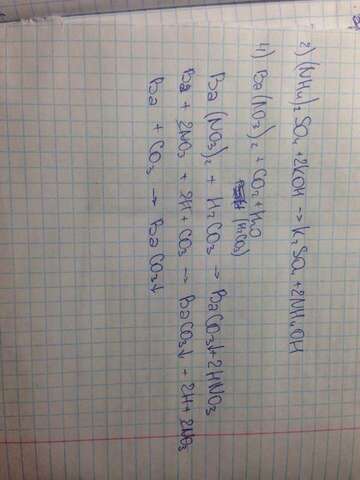 2) (NH4)2 SO4 + 2KOH → K2SO4 + 2NH4OH
4) Ba(NO3)2 + CO2 + H2O
(H2CO3)
Ba (NO3)2 + H2CO3 → BaCO3↓ + 2HNO3
Ba + 2NO3 + 2H + CO3 → BaCO3↓ + 2H + 2NO3
Ba + CO3 → BaCO3↓